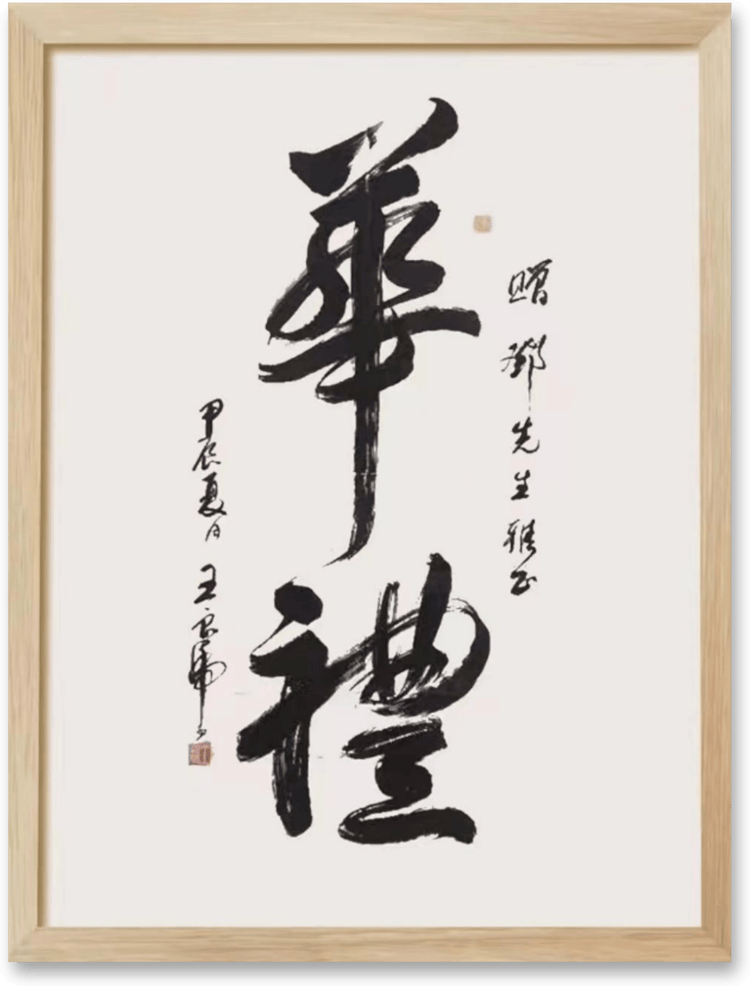 華禮
贈鄧先生雅正
甲辰夏月 王